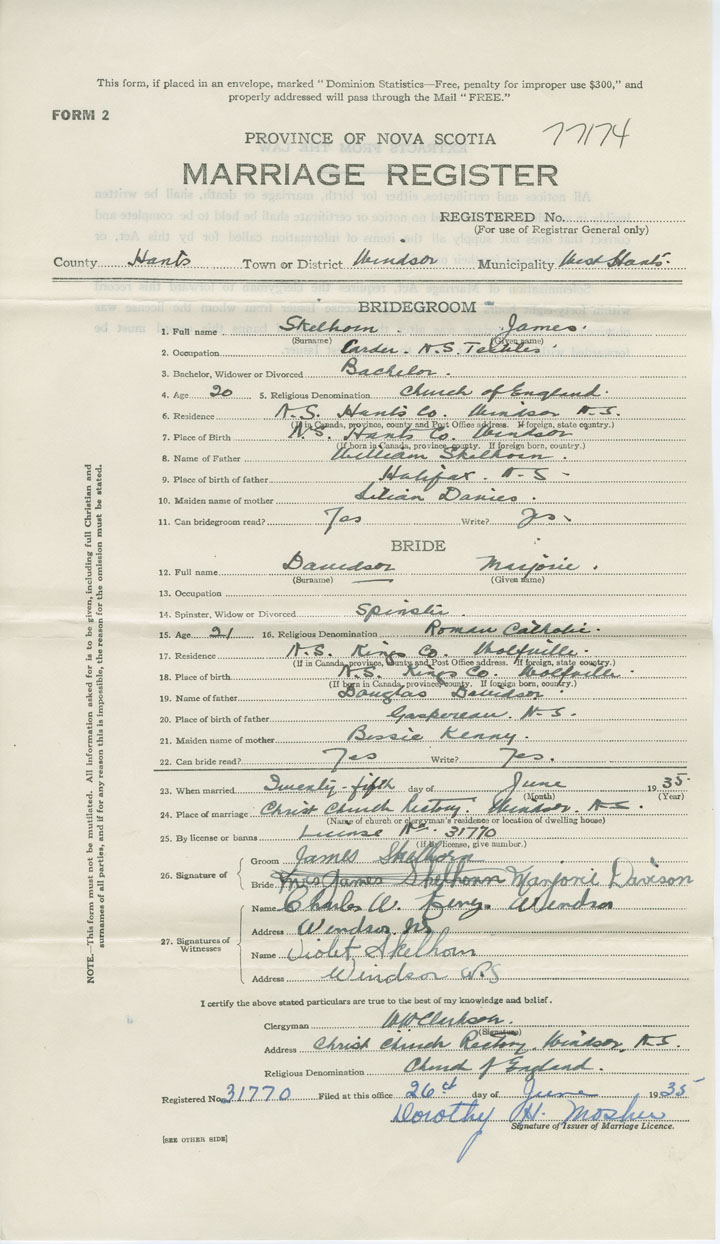 This form, if placed in an envelope, marked "Dominion Statistics—Free, penalty for improper use $300," and
properly addressed will pass through the Mail "FREE."
FORM 2
77174
PROVINCE OF NOVA SCOTIA
MARRIAGE REGISTER
REGISTERED No.
(For use of Registrar General only)
County Hants Town or District Windsor Municipality West Hants.
BRIDEGROOM
1. Full name Skelhorn James.
(Surname) (Given name)
2. Occupation Carder. N.S. Textiles
3. Bachelor, Widower or Divorced Bachelor.
4. Age 20 5. Religious Denomination Church of England.
6. Residence N.S. Hants Co. Windsor N.S.
(If in Canada, province, county and Post Office address. If foreign, state country.)
7. Place of Birth N.S. Hants Co. Windsor
(If born in Canada, province, county. If foreign born, country.)
8. Name of Father William Skelhorn.
9. Place of birth of father Halifax. N-S-
10. Maiden name of mother Lilian Davies.
11. Can bridegroom read? Yes Write? Yes.
BRIDE
12. Full name Davidson Marjorie.
(Surname) (Given name)
13. Occupation
14. Spinster, Widow or Divorced Spinster.
15. Age 21 16. Religious Denomination Roman Catholic.
17. Residence N.S. Kings Co. Wolfville.
(If in Canada, province, county and Post Office address. If foreign, state country.)
18. Place of birth N.S. Kings Co. Wolfville.
(If born in Canada, province, county. If foreign born, country.)
19. Name of father Douglas Davidson.
20. Place of birth of father Gaspereau. N-S.
21. Maiden name of mother Bessie Kenny.
22. Can bride read? Yes Write? Yes.
23. When married Twenty-fifth day of June 1935
(Month) (Year)
24. Place of marriage Christ Church Rectory. Windsor, N.S.
(Name of church or clergyman's residence or location of dwelling house)
25. By license or banns License No. 31770
(If by license, give number.)
26. Signature of
Groom James Skelhorn
Bride Mrs James Skelhorn Marjorie Davison
27. Signatures of Witnesses
Name Charles W. King. Windsor
Address Windsor NS
Name Violet Skelhorn
Address Windsor N.S
I certify the above stated particulars are true to the best of my knowledge and belief.
Clergyman
(Signature)
Address Christ Church Rectory, Windsor, N.S.
Religious Denomination Church of England.
Registered No. 31770 Filed at this office 26th day of June 1935
Dorothy H. Mosher
Signature of Issuer of Marriage Licence.
[SEE OTHER SIDE]
NOTE.—This form must not be mutilated. All information asked for is to be given, including full Christian and
surnames of all parties, and if for any reason this is impossible, the reason for the omission must be stated.